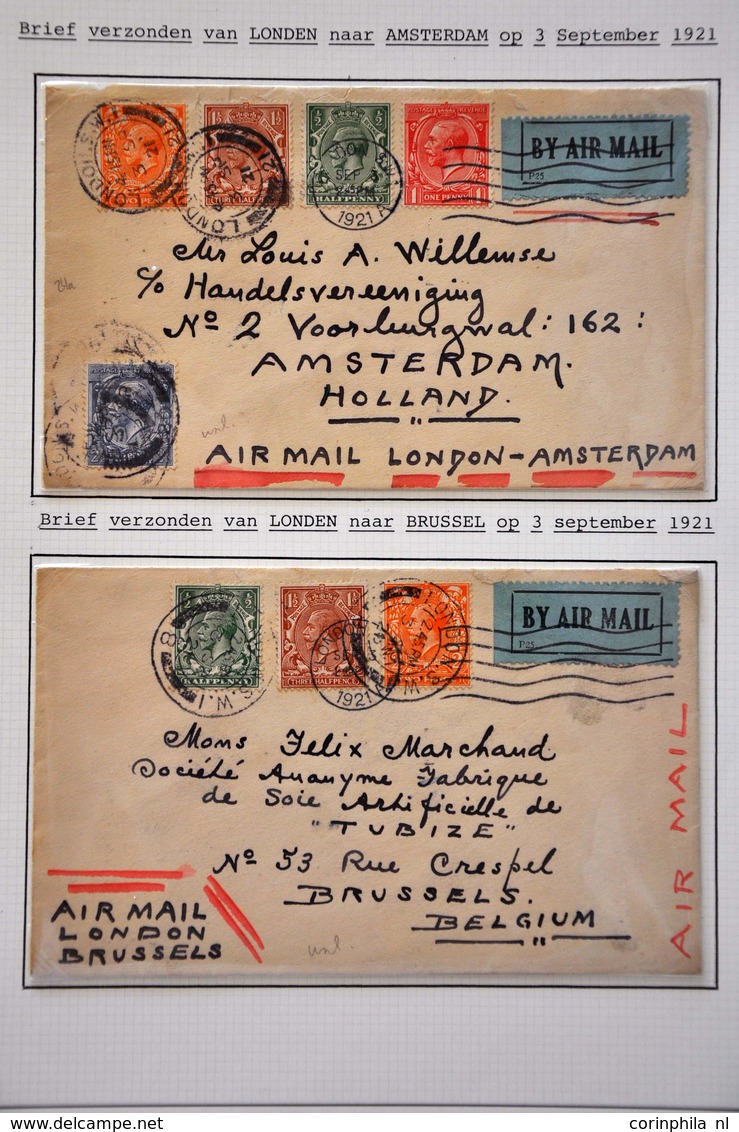 Brief verzonden van LONDEN naar AMSTERDAM op 3 September 1921
BY AIR MAIL
P25
HALFPENNY
ONE PENNY
SEP 3
1921
Mr Louis A. Willemse
c/o Handelsvereeniging
No 2 Voorburgwal: 162:
AMSTERDAM.
HOLLAND.
unl.
AIR MAIL LONDON-AMSTERDAM
Brief verzonden van LONDEN naar BRUSSEL op 3 september 1921
BY AIR MAIL
P25
HALFPENNY
THREE HALFPENCE
1921
Mons Felix Marchand
Société Ananyme Fabrique
de Soie Artificielle de
"TUBIZE"
No 53 Rue Crespel
BRUSSELS.
BELGIUM
AIR MAIL
LONDON
BRUSSELS
unl.
AIR MAIL
corinphila nl